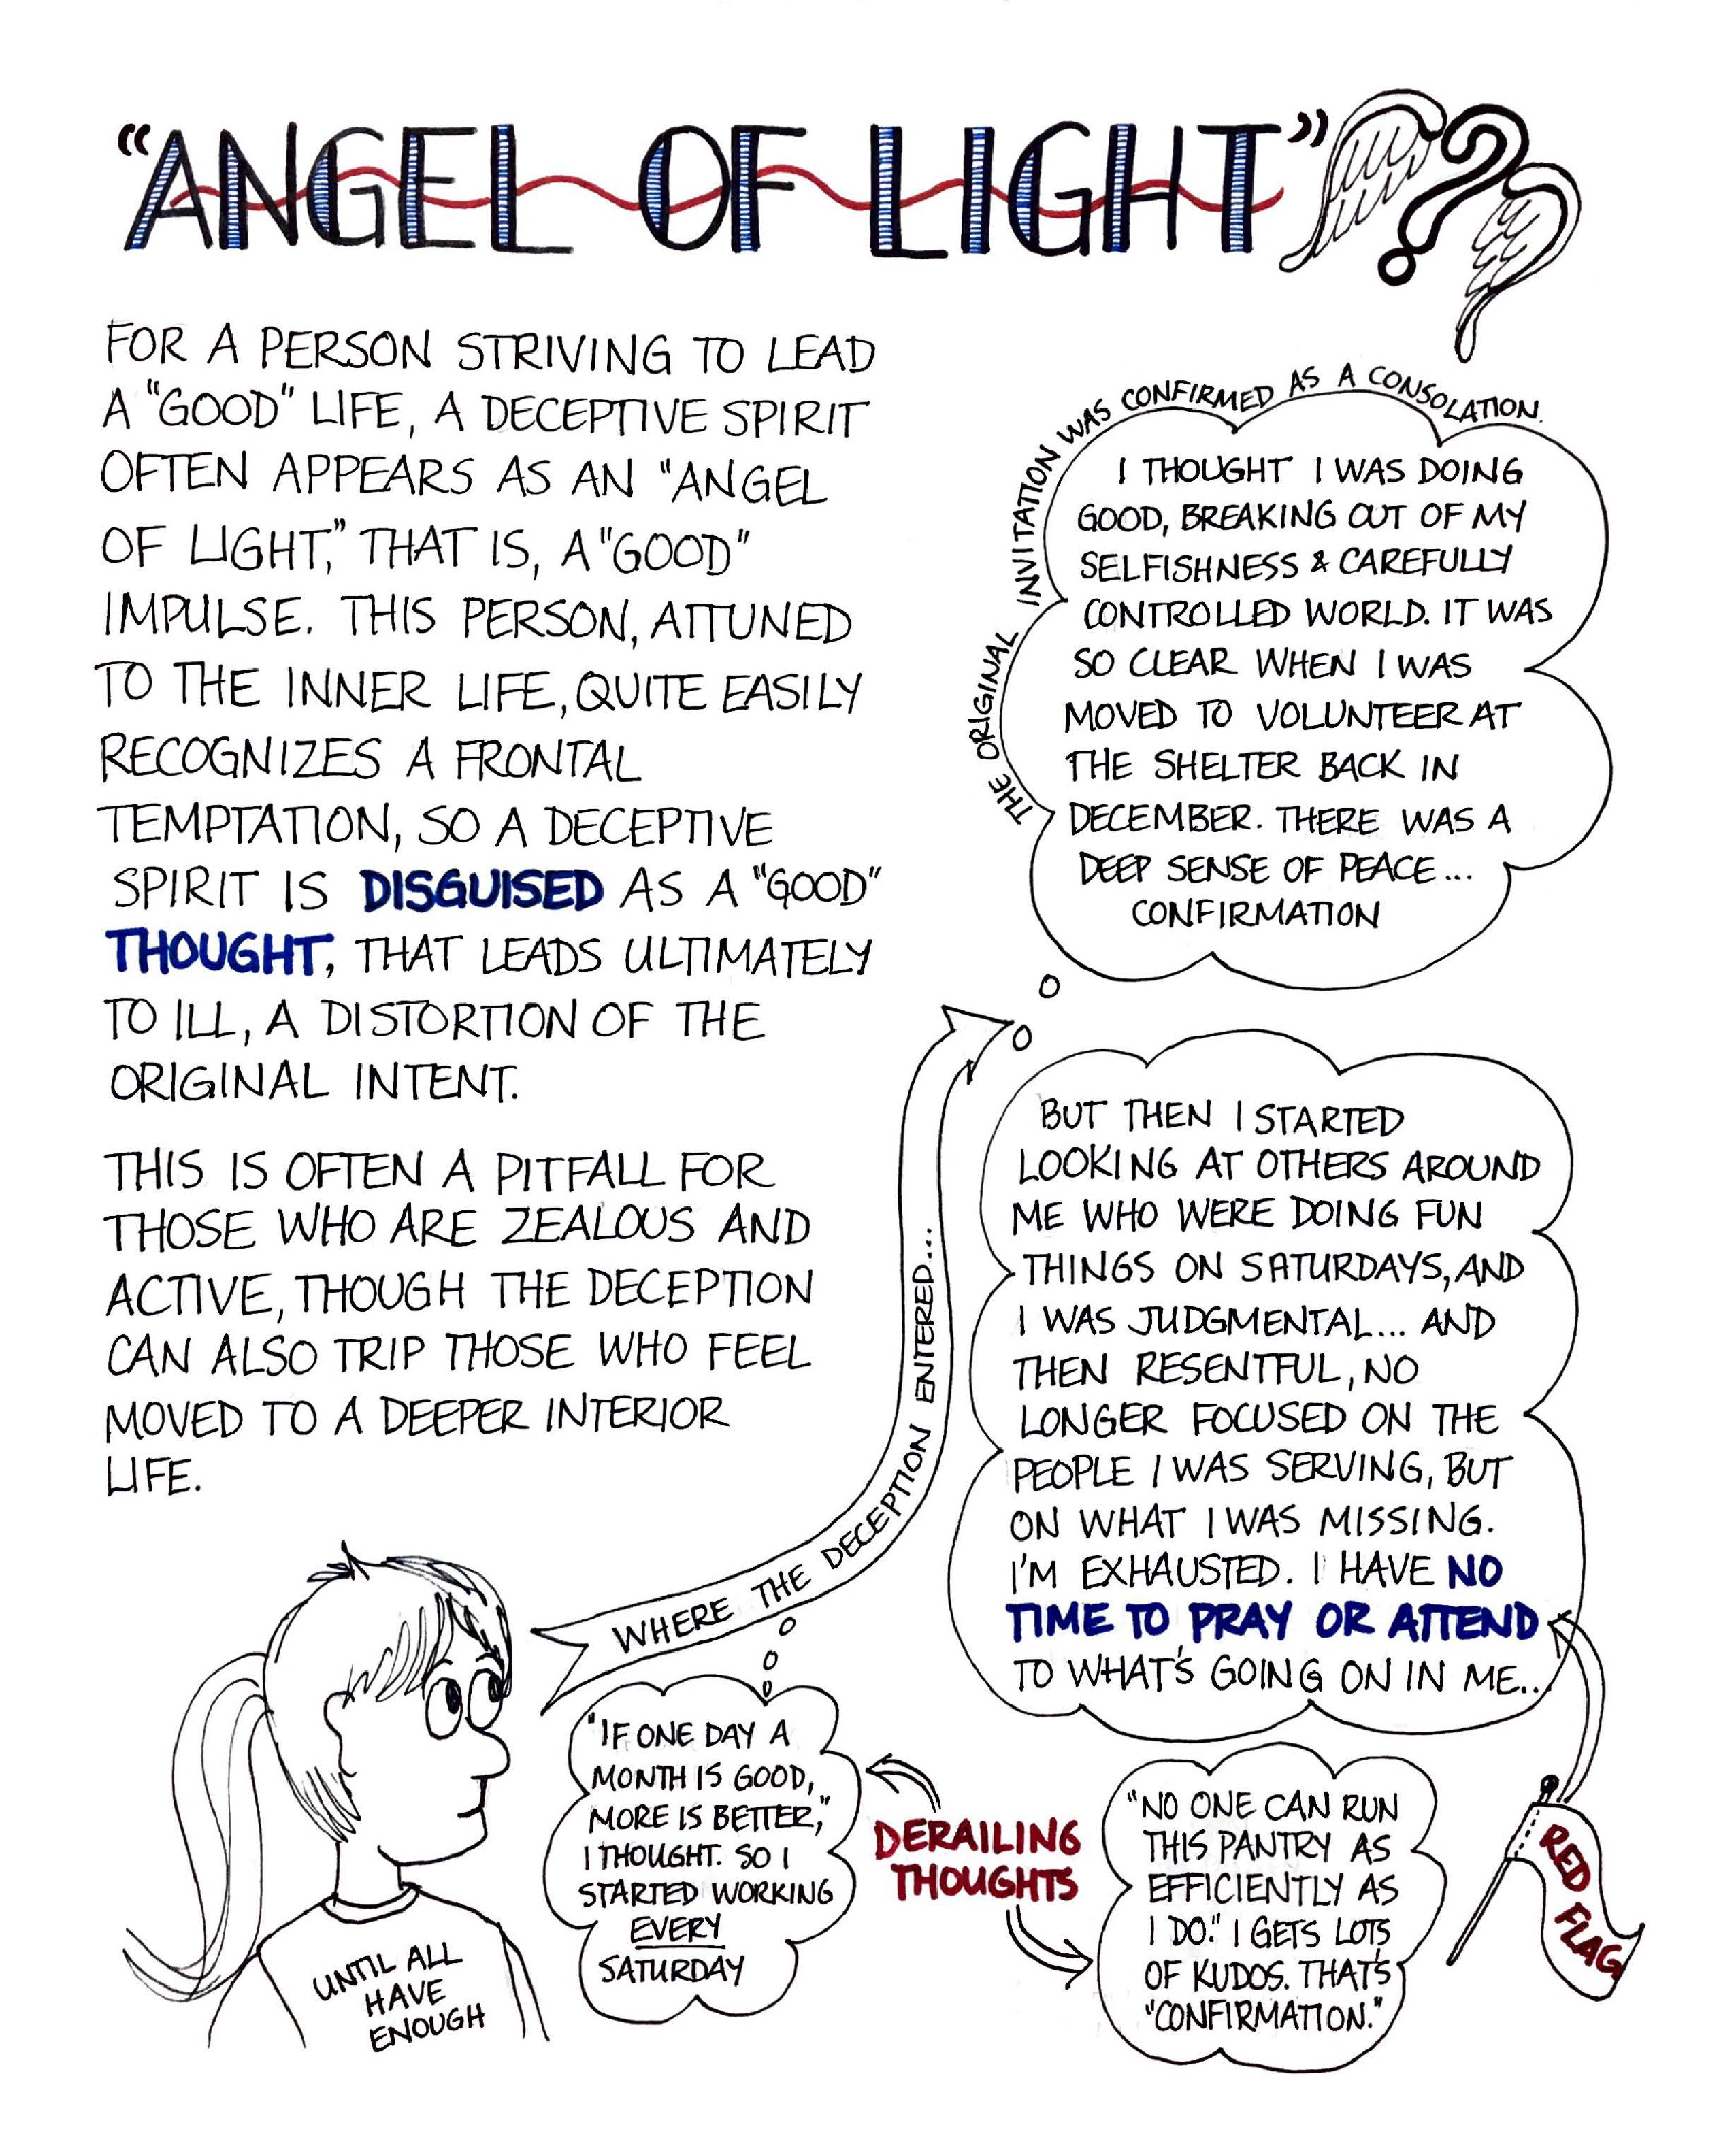 "ANGEL OF LIGHT"?
FOR A PERSON STRIVING TO LEAD
A "GOOD" LIFE, A DECEPTIVE SPIRIT
OFTEN APPEARS AS AN "ANGEL
OF LIGHT," THAT IS, A "GOOD"
IMPULSE. THIS PERSON, ATTUNED
TO THE INNER LIFE, QUITE EASILY
RECOGNIZES A FRONTAL
TEMPTATION, SO A DECEPTIVE
SPIRIT IS DISGUISED AS A "GOOD"
THOUGHT, THAT LEADS ULTIMATELY
TO ILL, A DISTORTION OF THE
ORIGINAL INTENT.
THIS IS OFTEN A PITFALL FOR
THOSE WHO ARE ZEALOUS AND
ACTIVE, THOUGH THE DECEPTION
CAN ALSO TRIP THOSE WHO FEEL
MOVED TO A DEEPER INTERIOR
LIFE.
THE ORIGINAL INVITATION WAS CONFIRMED AS A CONSOLATION.
I THOUGHT I WAS DOING
GOOD, BREAKING OUT OF MY
SELFISHNESS & CAREFULLY
CONTROLLED WORLD. IT WAS
SO CLEAR WHEN I WAS
MOVED TO VOLUNTEER AT
THE SHELTER BACK IN
DECEMBER. THERE WAS A
DEEP SENSE OF PEACE...
CONFIRMATION
WHERE THE DECEPTION ENTERED...
BUT THEN I STARTED
LOOKING AT OTHERS AROUND
ME WHO WERE DOING FUN
THINGS ON SATURDAYS, AND
I WAS JUDGMENTAL... AND
THEN RESENTFUL, NO
LONGER FOCUSED ON THE
PEOPLE I WAS SERVING, BUT
ON WHAT I WAS MISSING.
I'M EXHAUSTED. I HAVE NO
TIME TO PRAY OR ATTEND
TO WHAT'S GOING ON IN ME...
"IF ONE DAY A
MONTH IS GOOD,
MORE IS BETTER,"
I THOUGHT. SO I
STARTED WORKING
EVERY
SATURDAY
DERAILING
THOUGHTS
"NO ONE CAN RUN
THIS PANTRY AS
EFFICIENTLY AS
I DO." I GETS LOTS
OF KUDOS. THAT'S
"CONFIRMATION."
RED
FLAG
UNTIL ALL
HAVE
ENOUGH